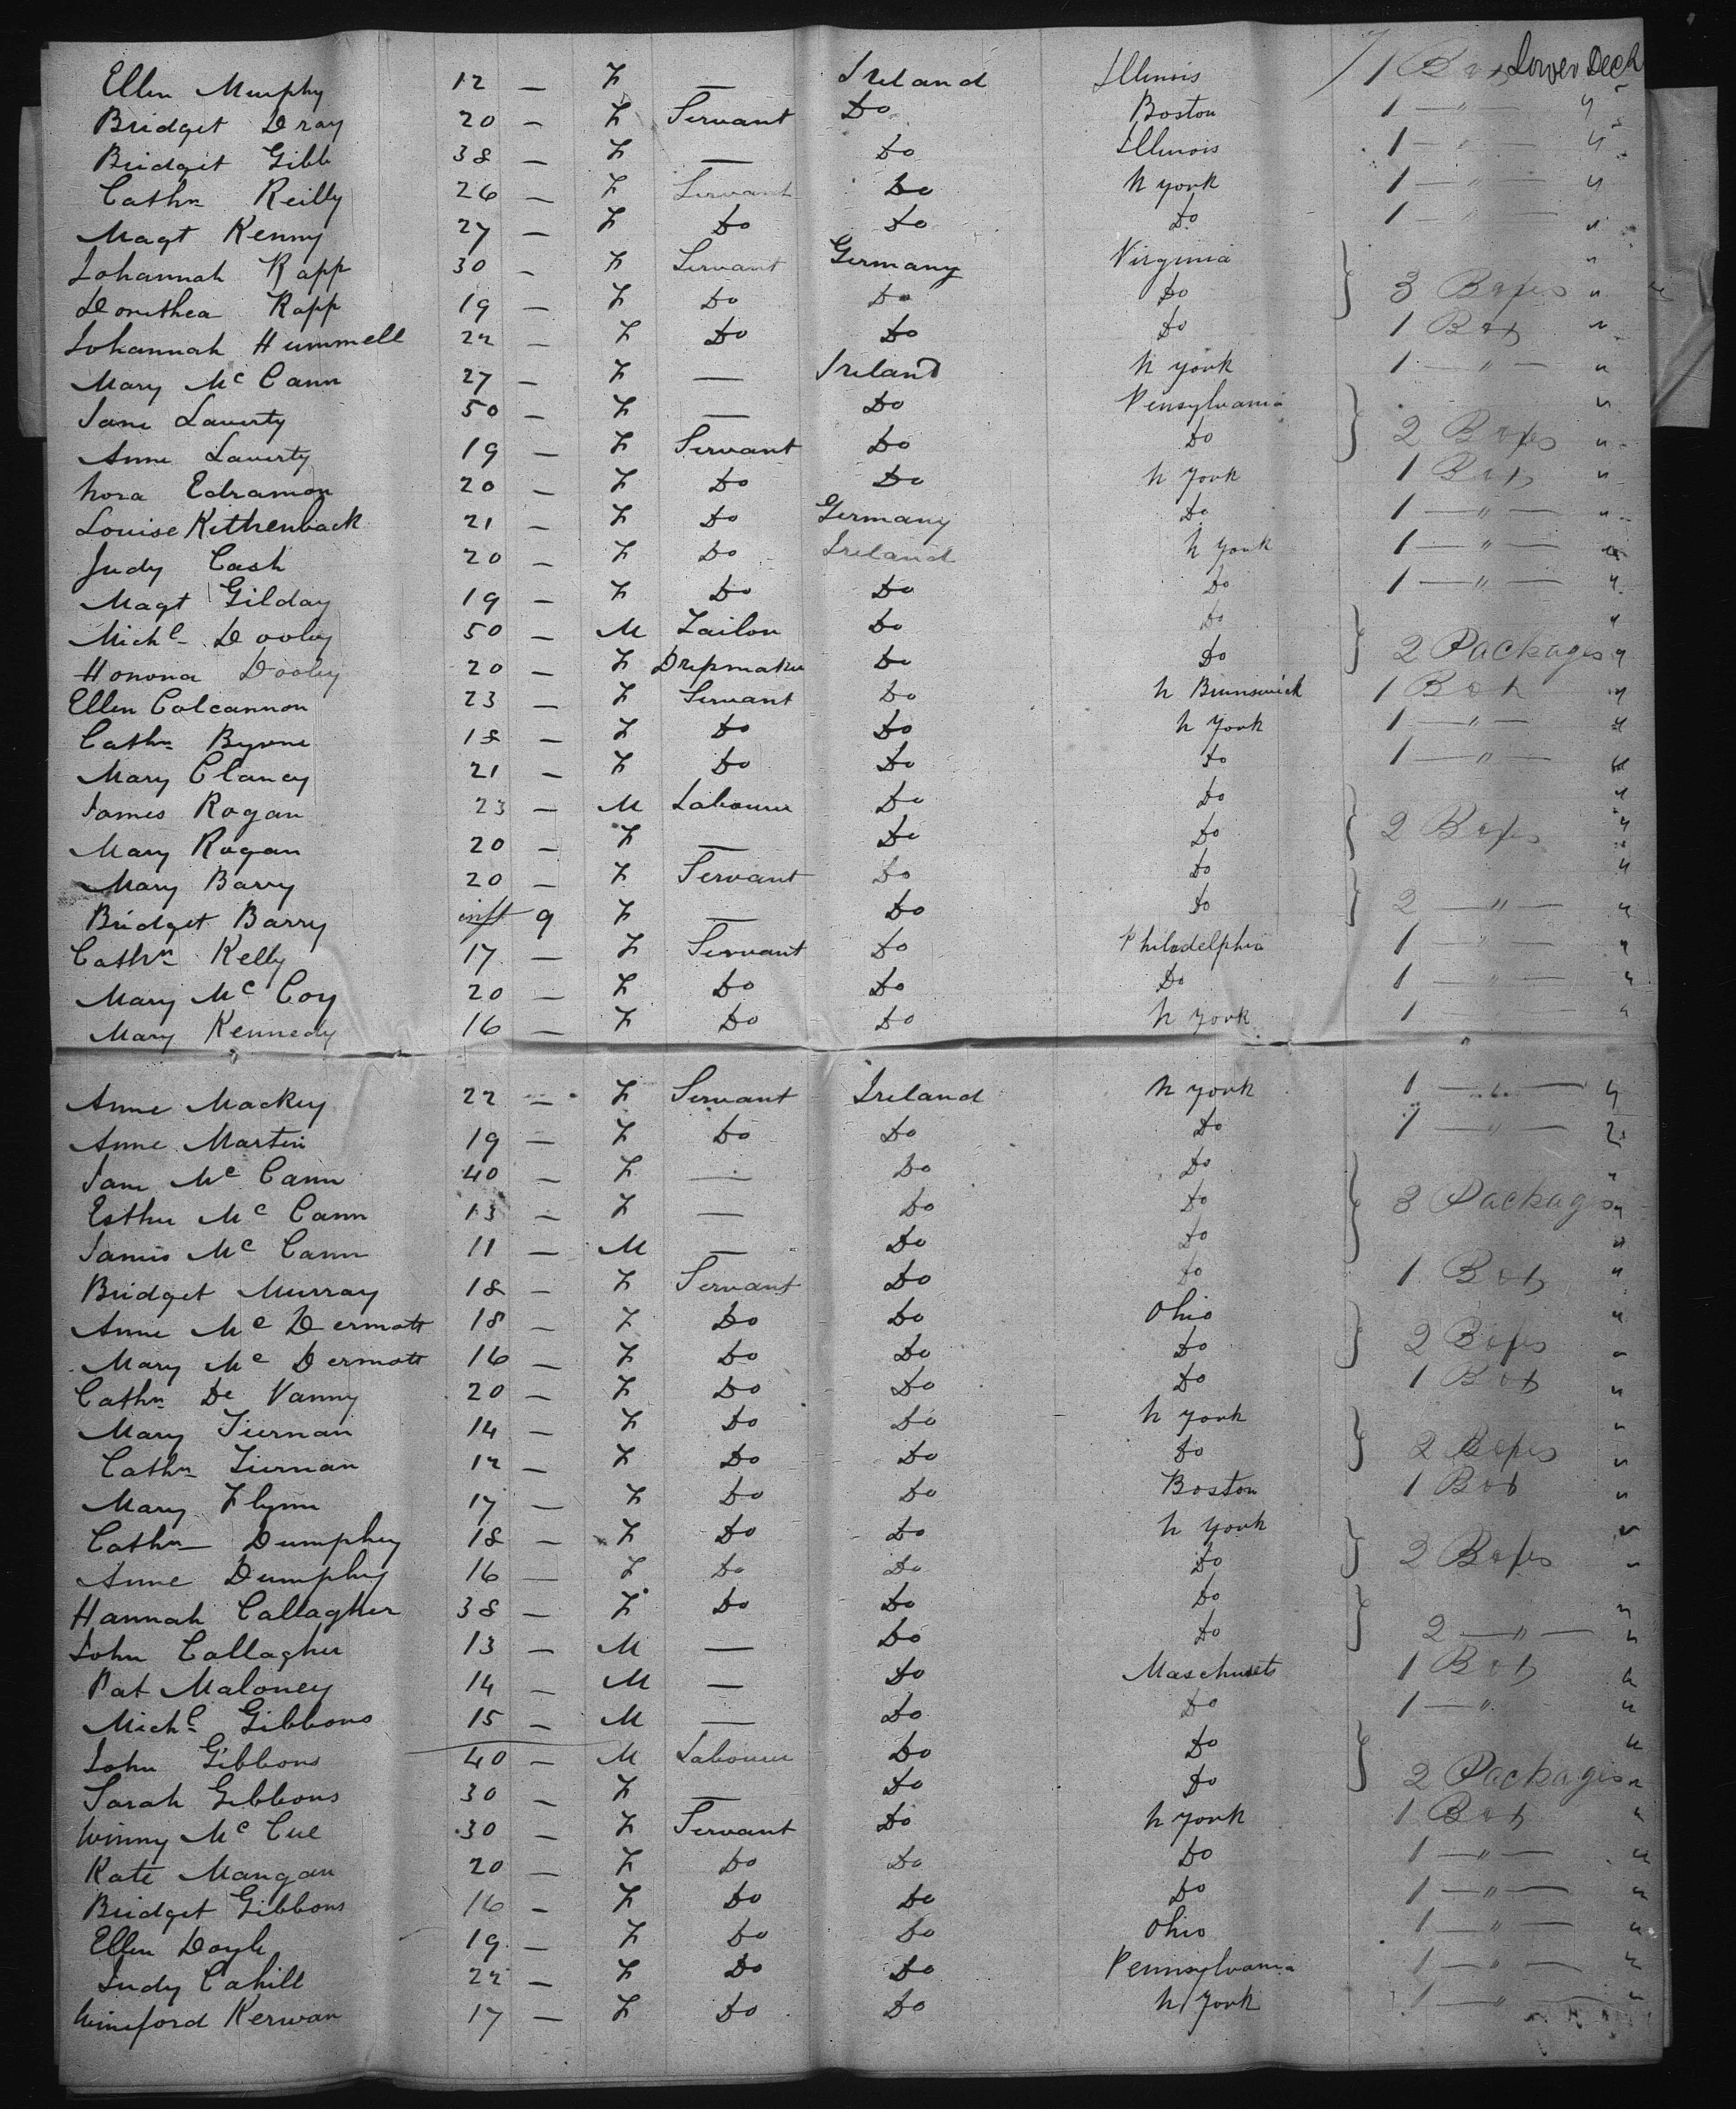 Ellen Murphy 12 — F — Ireland Illinois 1 Box Lower Deck
Bridget Dray 20 — F Servant Do Boston 1 — " — "
Bridget Gibb 38 — F — Do Illinois 1 — " — "
Cathn Reilly 26 — F Servant Do N York 1 — " — "
Magt Kenny 27 — F Do Do Do 1 — " — "
Johannah Rapp 30 — F Servant Germany Virginia "
Dorithea Rapp 19 — F Do Do Do } 3 Boxes "
Johannah Hummell 22 — F Do Do Do 1 Box "
Mary Mc Cann 27 — F — Ireland N York 1 — " — "
Jane Laverty 50 — F — Do Pensylvania "
Anne Laverty 19 — F Servant Do Do } 2 Boxes "
Nora Edramon 20 — F Do Do N York 1 Box "
Louise Kithenback 21 — F Do Germany Do 1 — " — "
Judy Cash 20 — F Do Ireland N York 1 — " — "
Magt Gilday 19 — F Do Do Do 1 — " — "
Michl Dooley 50 — M Tailor Do Do "
Honora Dooley 20 — F Dressmaker Do Do } 2 Packages "
Ellen Colcannon 23 — F Servant Do N Brunswick 1 Box "
Cathn Byrne 18 — F Do Do N York 1 — " — "
Mary Clancy 21 — F Do Do Do 1 — " — "
James Rogan 23 — M Labourer Do Do "
Mary Rogan 20 — F — Do Do } 2 Boxes "
Mary Barry 20 — F Servant Do Do "
Bridget Barry inft 9 F — Do Do } 2 — " — "
Cathn Kelly 17 — F Servant Do Philadelphia 1 — " — "
Mary Mc Coy 20 — F Do Do Do 1 — " — "
Mary Kennedy 16 — F Do Do N York 1 "
Anne Mackey 22 — F Servant Ireland N York 1 — " — "
Anne Martin 19 — F Do Do Do 1 — " — "
Jane Mc Cann 40 — F — Do Do "
Esther Mc Cann 13 — F — Do Do } 3 Packages "
James Mc Cann 11 — M — Do Do "
Bridget Murray 18 — F Servant Do Do 1 Box "
Anne Mc Dermott 18 — F Do Do Ohio "
Mary Mc Dermott 16 — F Do Do Do } 2 Boxes "
Cathn De Vanny 20 — F Do Do Do 1 Box "
Mary Tiernan 14 — F Do Do N York "
Cathn Tiernan 12 — F Do Do Do } 2 Boxes "
Mary Flynn 17 — F Do Do Boston 1 Box "
Cathn Dumphey 18 — F Do Do N York "
Anne Dumphy 16 — F Do Do Do } 2 Boxes "
Hannah Callagher 38 — F Do Do Do "
John Callagher 13 — M — Do Do } 2 — " — "
Pat Maloney 14 — M — Do Maschusets 1 Box "
Michl Gibbons 15 — M — Do Do 1 — " "
John Gibbons 40 — M Labourer Do Do "
Sarah Gibbons 30 — F — Do Do } 2 Packages "
Winny Mc Cue 30 — F Servant Do N York 1 Box "
Kate Mangan 20 — F Do Do Do 1 — " — "
Bridget Gibbons 16 — F Do Do Do 1 — " — "
Ellen Doyle 19 — F Do Do Ohio 1 — " — "
Judy Cahill 22 — F Do Do Pennsylvania 1 — " — "
Winiford Kerwan 17 — F Do Do N York 1 — " —